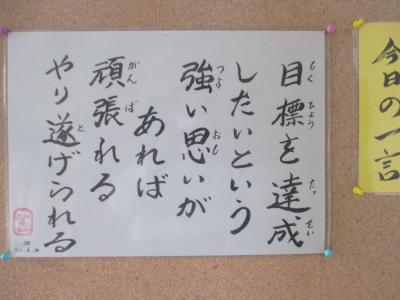 今日の一言
目標を達成
したいという
強い思いが
あれば
頑張れる
やり遂げられる
もくひょう
たっせい
つよ
おも
がんば
と